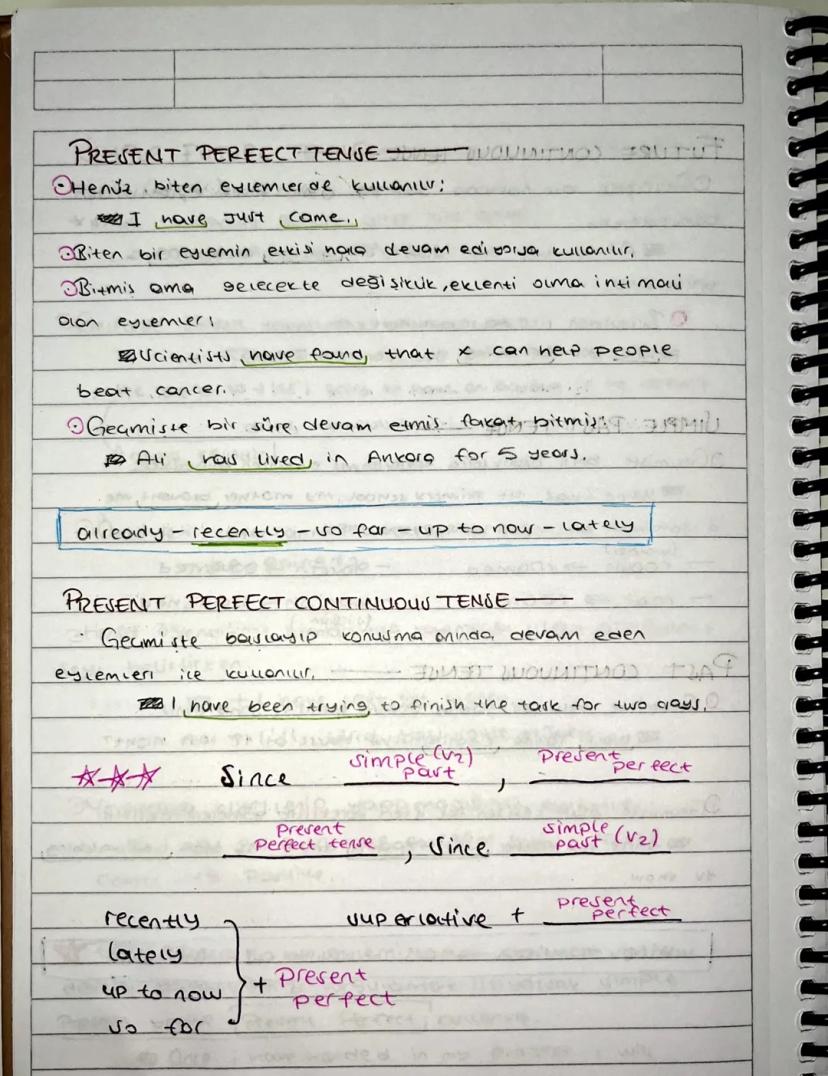 PRESENT PERFECT TENSE
Henüz biten eylemlerde kullanılır:
I have just come.
Biten bir eylemin etkisi hala devam ediyorsa kullanılır.
Bitmiş ama gelecekte değişiklik, eklenti olma intimali
olan eylemler:
Scientists have found that x can help people
beat cancer.
Geçmişte bir süre devam etmiş fakat bitmiş:
Ali has lived in Ankara for 5 years.
already - recently - so far - up to now - lately
PRESENT PERFECT CONTINUOUS TENSE
Geçmişte başlayıp konuşma anında devam eden
eylemleri ile kullanılır.
I have been trying to finish the task for two days.
Since simple (V2) past, Present perfect
Present Perfect tense, Since simple past (V2)
recently superlative + present perfect
lately
up to now + Present perfect
so far